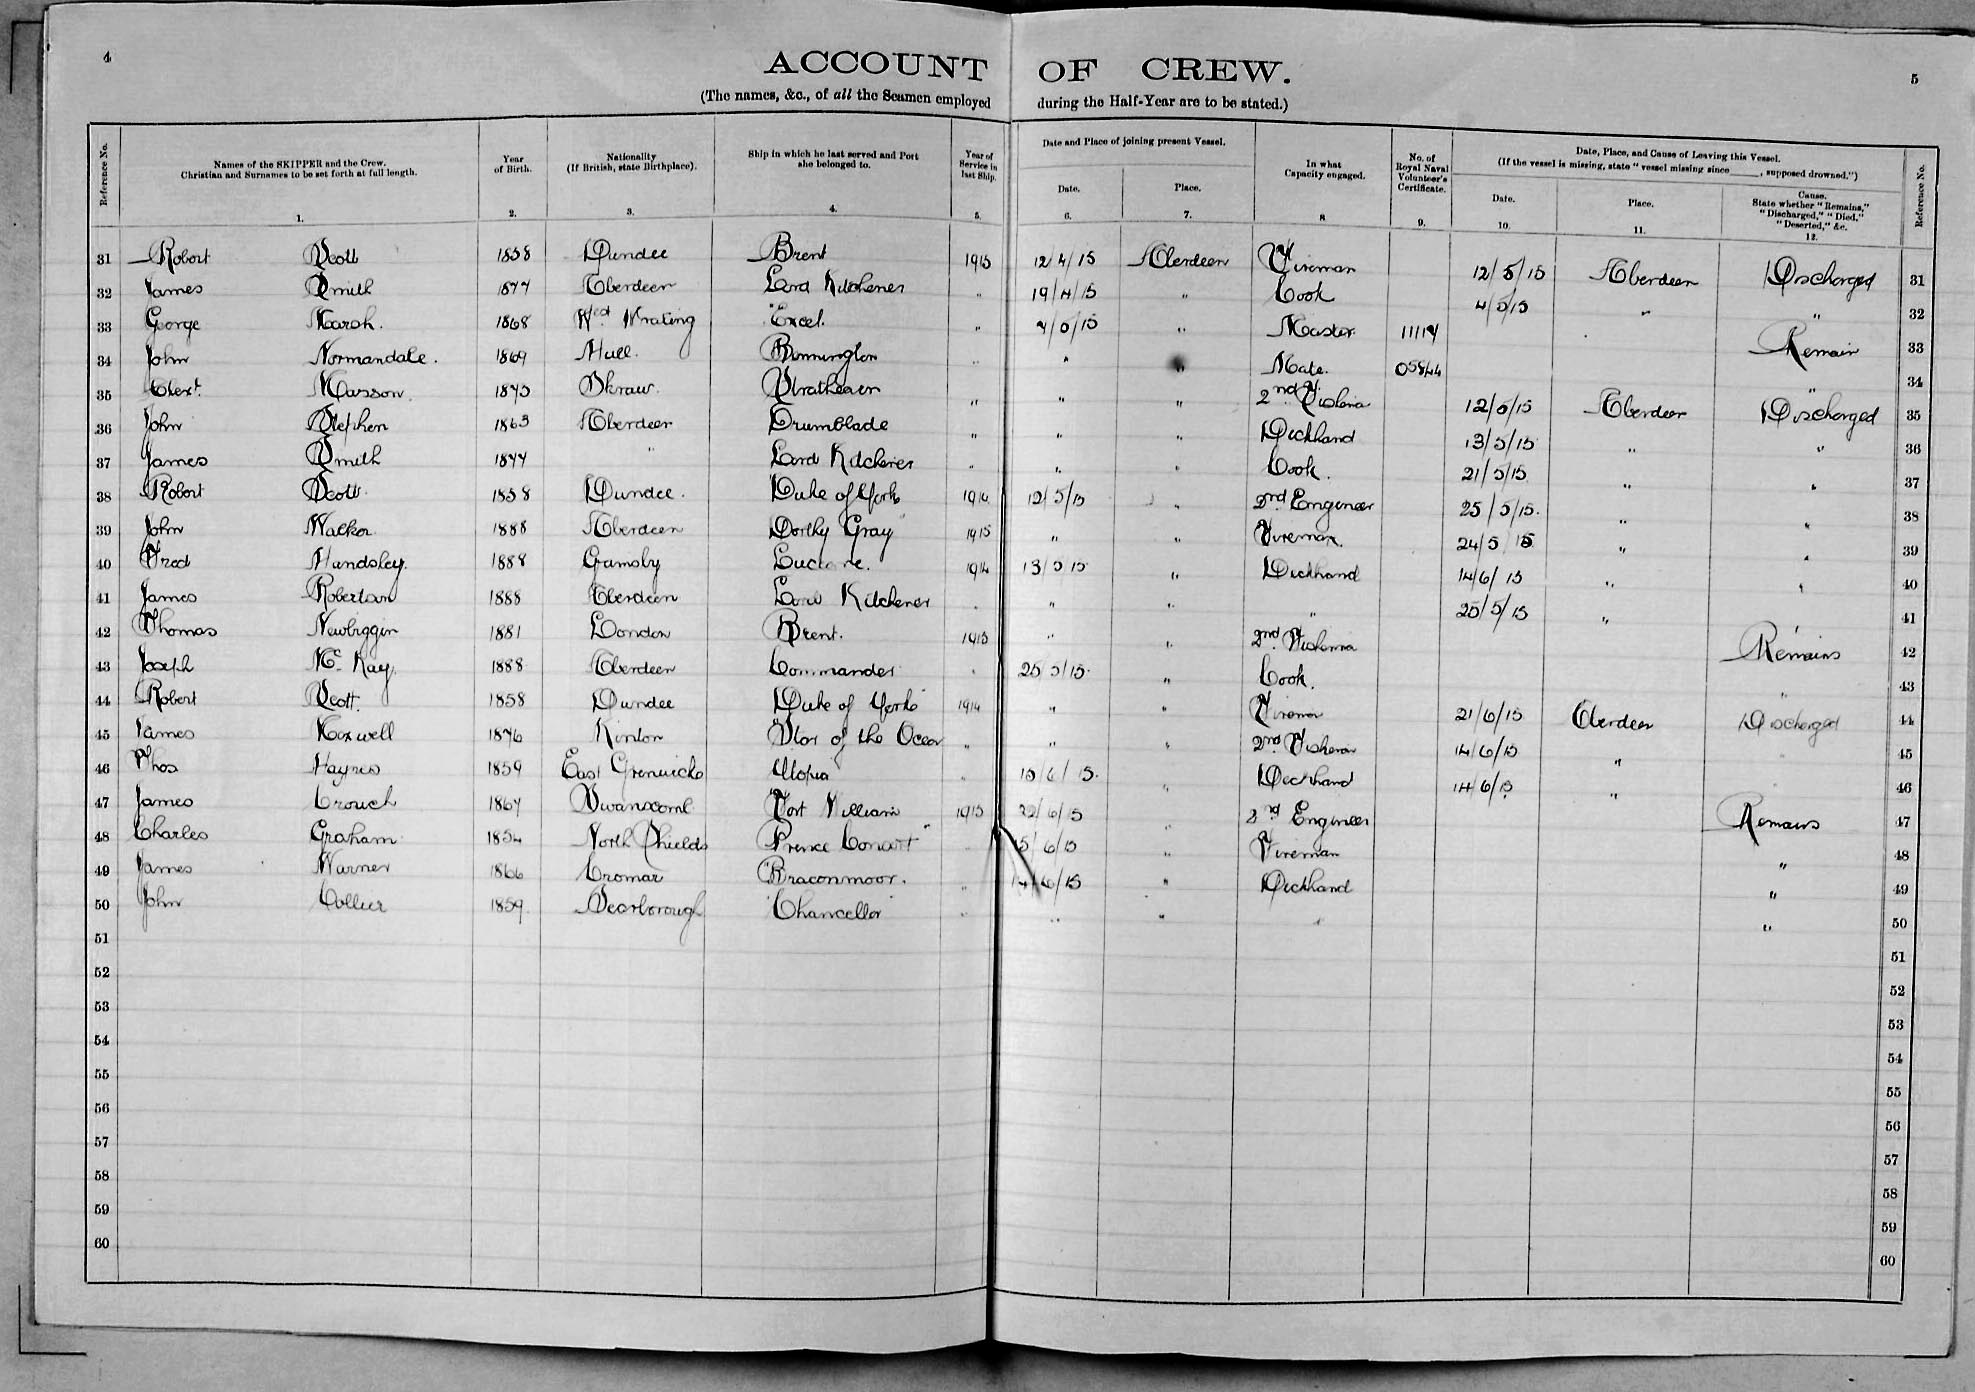 4
ACCOUNT OF CREW.
5
(The names, &c., of all the Seamen employed during the Half-Year are to be stated.)
Reference No.
Names of the SKIPPER and the Crew.
Christian and Surnames to be set forth at full length.
1.
Year of Birth.
2.
Nationality
(If British, state Birthplace).
3.
Ship in which he last served and Port she belonged to.
4.
Year of Service in last Ship.
5.
Date and Place of joining present Vessel.
Date.
6.
Place.
7.
In what Capacity engaged.
8
No. of Royal Naval Volunteer's Certificate.
9.
Date, Place, and Cause of Leaving this Vessel.
(If the vessel is missing, state "vessel missing since ____, supposed drowned.")
Date.
10.
Place.
11.
Cause.
State whether "Remains," "Discharged," "Died," "Deserted," &c.
12.
Reference No.
31 Robert Scott 1858 Dundee Brent 1915 12/4/15 Aberdeen Fireman 12/5/15 Aberdeen Discharged 31
32 James Smith 1877 Aberdeen Lord Kitchener " 19/4/15 " Cook 4/5/15 " " 32
33 George Marsh. 1868 Wrating Excel. " 7/5/15 " Master 11117 Remain 33
34 John Normandale. 1869 Hull. Bonnington " " " Mate. 05844 " 34
35 Alexr. Masson. 1873 Skraw. Strathearn " " " 2nd Fisherman 12/5/15 Aberdeen Discharged 35
36 John Stephen 1863 Aberdeen Drumblade " " " Deckhand 13/5/15 " " 36
37 James Smith 1877 " Lord Kitchener " " " Cook. 21/5/15 " " 37
38 Robert Scott. 1858 Dundee. Duke of York 1914 12/5/15 " 2nd Engineer 25/5/15. " " 38
39 John Walker 1888 Aberdeen Dorthy Gray 1915 " " Fireman. 24/5/15 " " 39
40 Fred Handsley. 1888 Grimsby 1914 13/5/15 " Deckhand 14/6/15 " " 40
41 James Robertson 1888 Aberdeen Lord Kitchener " " " " 25/5/15 " " 41
42 Thomas Newbiggin 1881 London Brent. 1915 " " 2nd Fisherman Remains 42
43 Joseph McKay. 1888 Aberdeen Commander " 25/5/15. " Cook. " 43
44 Robert Scott. 1858 Dundee Duke of York 1914 " " Fireman 21/6/15 Aberdeen Discharged 44
45 James Maxwell 1876 Star of the Ocean " " " 2nd Fisherman 14/6/15 " 45
46 Thos Haynes 1859 East Grenwich Utopia " 15/6/15. " Deckhand 14/6/15 " 46
47 James Crouch 1867 Swanscomb Fort William 1915 22/6/15 " 2nd Engineer Remains 47
48 Charles Graham 1854 North Shields Prince Consort " 15/6/15 " Fireman " 48
49 James Warner 1866 Cromar Braconmoor. " 14/6/15 " Deckhand " 49
50 John Collier 1859 Scarborough Chancellor " " " " " 50
51 51
52 52
53 53
54 54
55 55
56 56
57 57
58 58
59 59
60 60